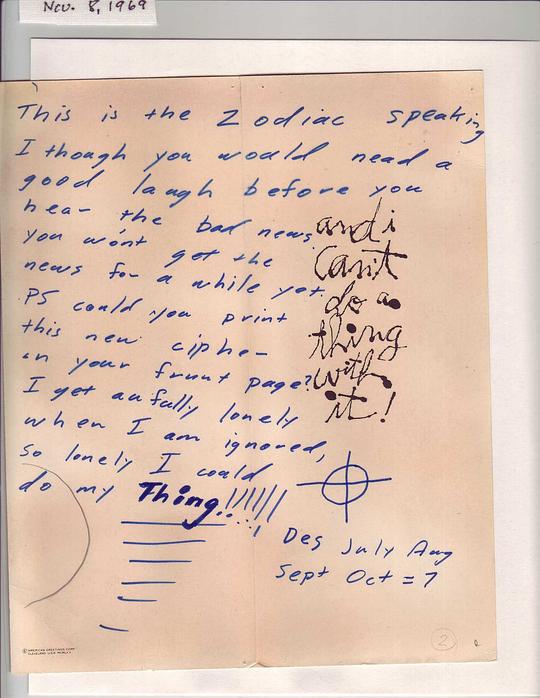 Nov. 8, 1969
This is the Zodiac speaking
I though you would nead a
good laugh before you
hear the bad news.
you won't get the
news for a while yet.
PS could you print
this new cipher
in your frunt page?
I get awfully lonely
when I am ignored,
so lonely I could
do my Thing!!!!!!
and i
can't
do a
thing
with
it!
Des July Aug
Sept Oct = 7
© AMERICAN GREETINGS CORP.
CLEVELAND U.S.A.
2